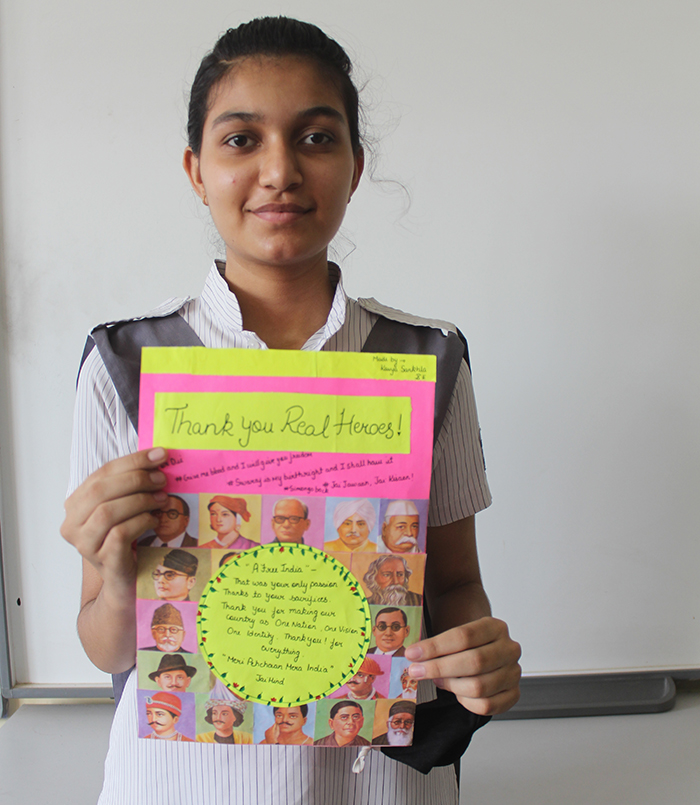 Made by :-
Sankhla
Thank you Real Heroes!
#Give me blood and I will give you freedom
#Swaraj is my birthright and I shall have it
#Simon go back # Jai Jawaan, Jai Kisaan!
"A Free India" -
That was your only passion
Thanks to your sacrifices.
Thank you for making our
Country as One Nation, One Vision
One Identity. Thankyou! for
everything.
"Meri Pehchaan Mera India"
Jai Hind